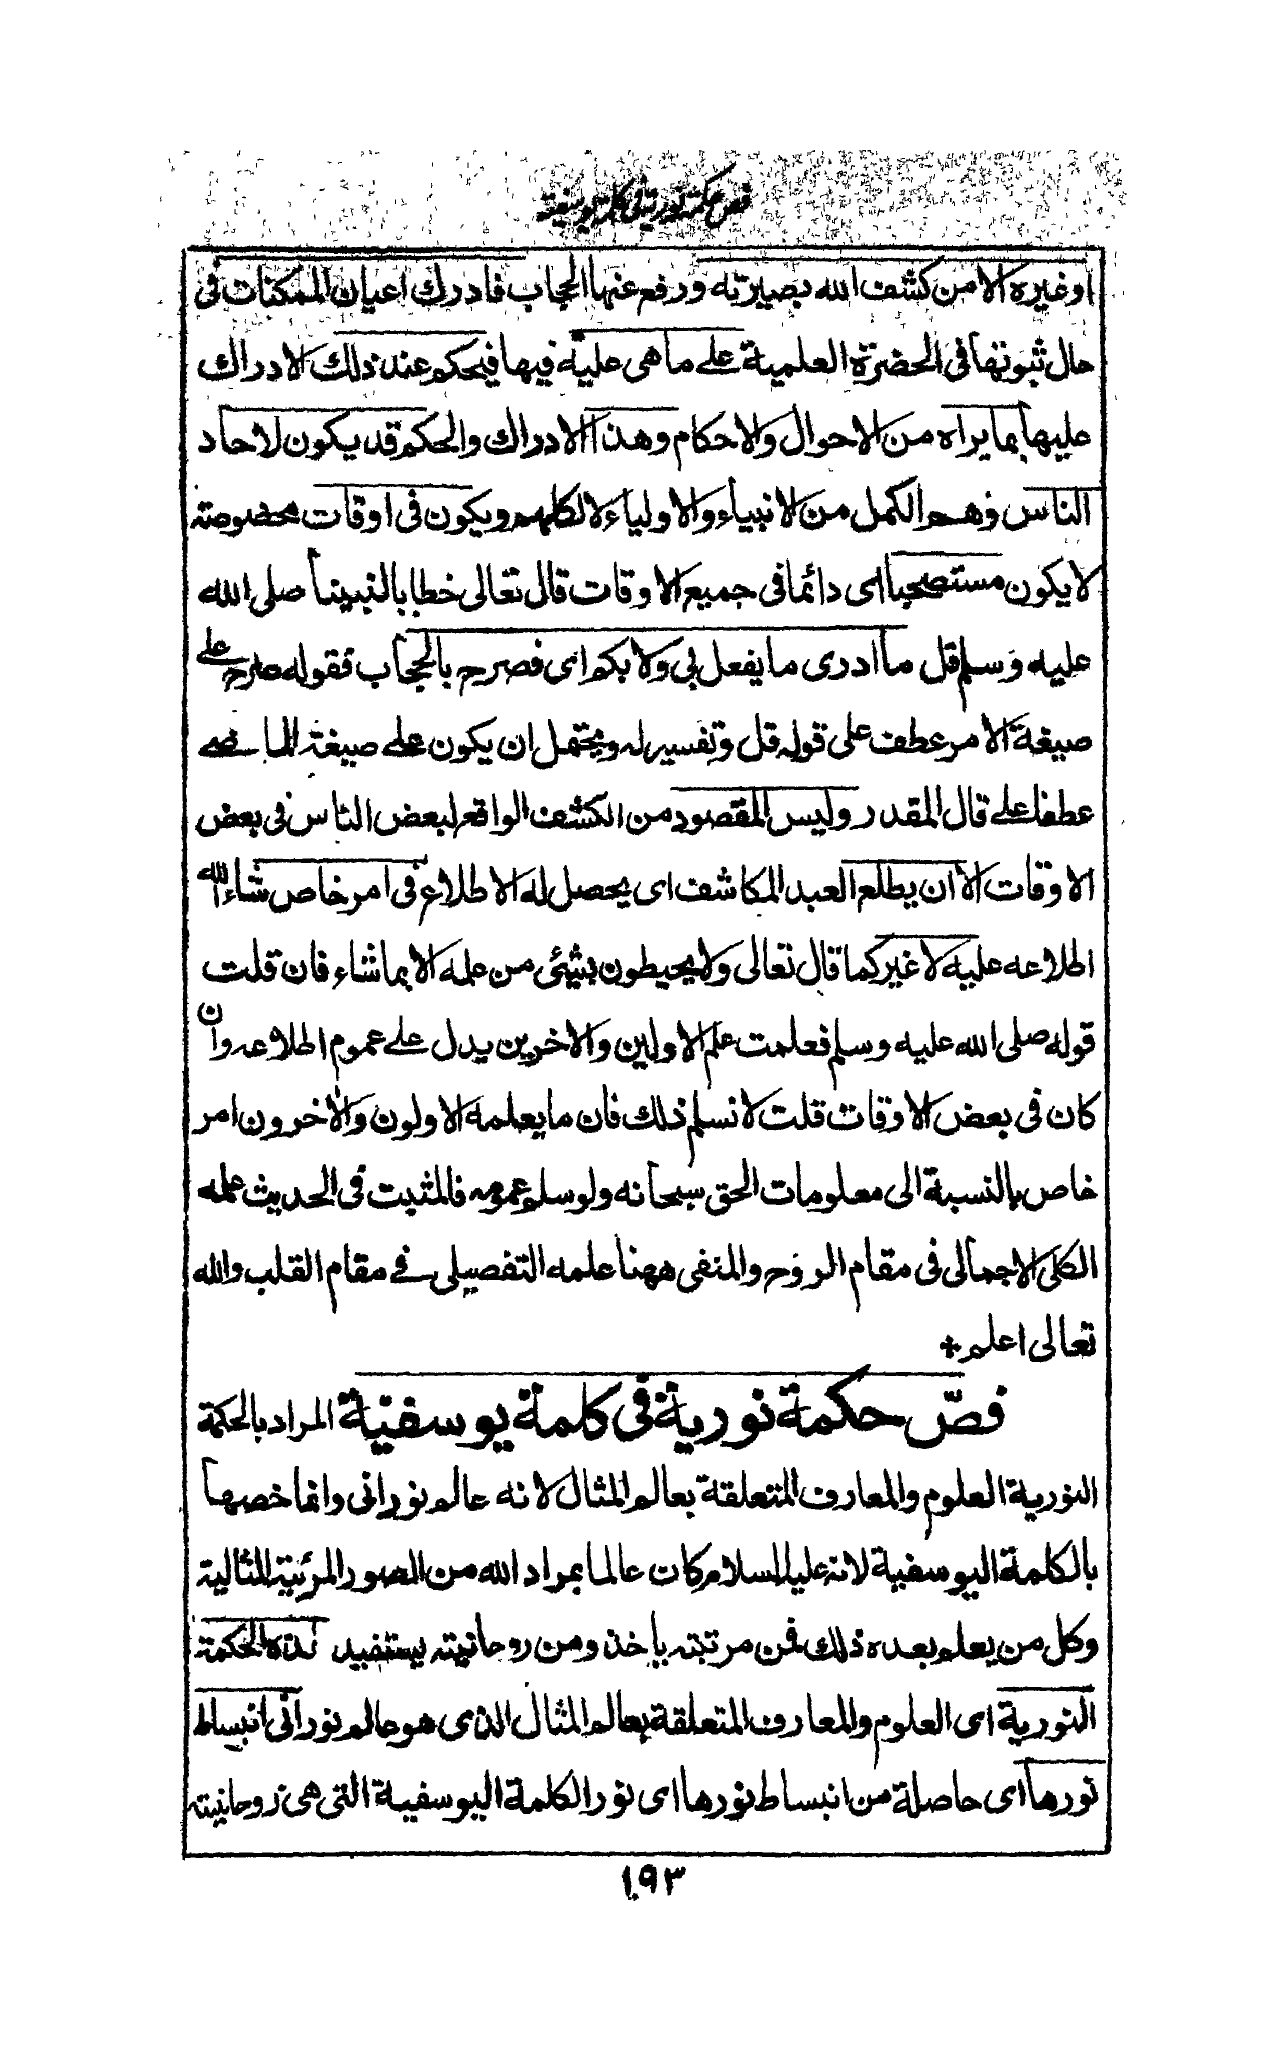 فص حكمة نورية في كلمة يوسفية
او غيره الا من كشف الله بصيرته ورفع عنها الحجاب فادرك اعيان الممكنات فى
حال ثبوتها فى الحضرة العلمية على ما هى عليه فيها فيحكم عند ذلك الادراك
عليها بما يراه من الاحوال والاحكام وهذا الادراك والحكم قد يكون لاحاد
الناس وهم الكمل من الانبياء والاولياء لا لكلهم ويكون فى اوقات مخصوصته
لا يكون مستصحبا اى دائما فى جميع الاوقات قال تعالى خطابا لنبينا صلى الله
عليه وسلم قل ما ادرى ما يفعل بى ولا بكم اى فصرح بالحجاب فقوله صرح على
صيغة الامر عطف على قوله قل وتفسير له ويحتمل ان يكون على صيغة الماضے
عطفا على قال المقدر وليس المقصود من الكشف الواقع لبعض الناس فى بعض
الاوقات الا ان يطلع العبد المكاشف اى يحصل له الاطلاع فى امر خاص شاء الله
اطلاعه عليه لا غير كما قال تعالى ولا يحيطون بشئ من علمه الا بما شاء فان قلت
قوله صلى الله عليه وسلم فعلمت علم الاولين والاخرين يدل على عموم اطلاعه وان
كان فى بعض الاوقات قلت لا نسلم ذلك فان ما يعلمه الاولون والاخرون امر
خاص بالنسبة الى معلومات الحق سبحانه ولو سلم عمومه فالمثبت فى الحديث علمه
الكلى الاجمالى فى مقام الروح والمنفى ههنا علمه التفصيلى فے مقام القلب والله
تعالى اعلم +
فصّ حكمة نورية فى كلمة يوسفيّة المراد بالحكمة
النورية العلوم والمعارف المتعلقة بعالم المثال لانه عالم نورانى وانما خصها
بالكلمة اليوسفية لانه عليه السلام كان عالما بمراد الله من الصور المرئية المثالية
وكل من يعلم بعده ذلك فمن مرتبته ياخذ ومن روحانيته يستفيد هذه الحكمة
النورية اى العلوم والمعارف المتعلقة بعالم المثال الذى هو عالم نورانى انبساط
نورها اى حاصلة من انبساط نورها اى نور الكلمة اليوسفية التى هى روحانيته
١٩٣